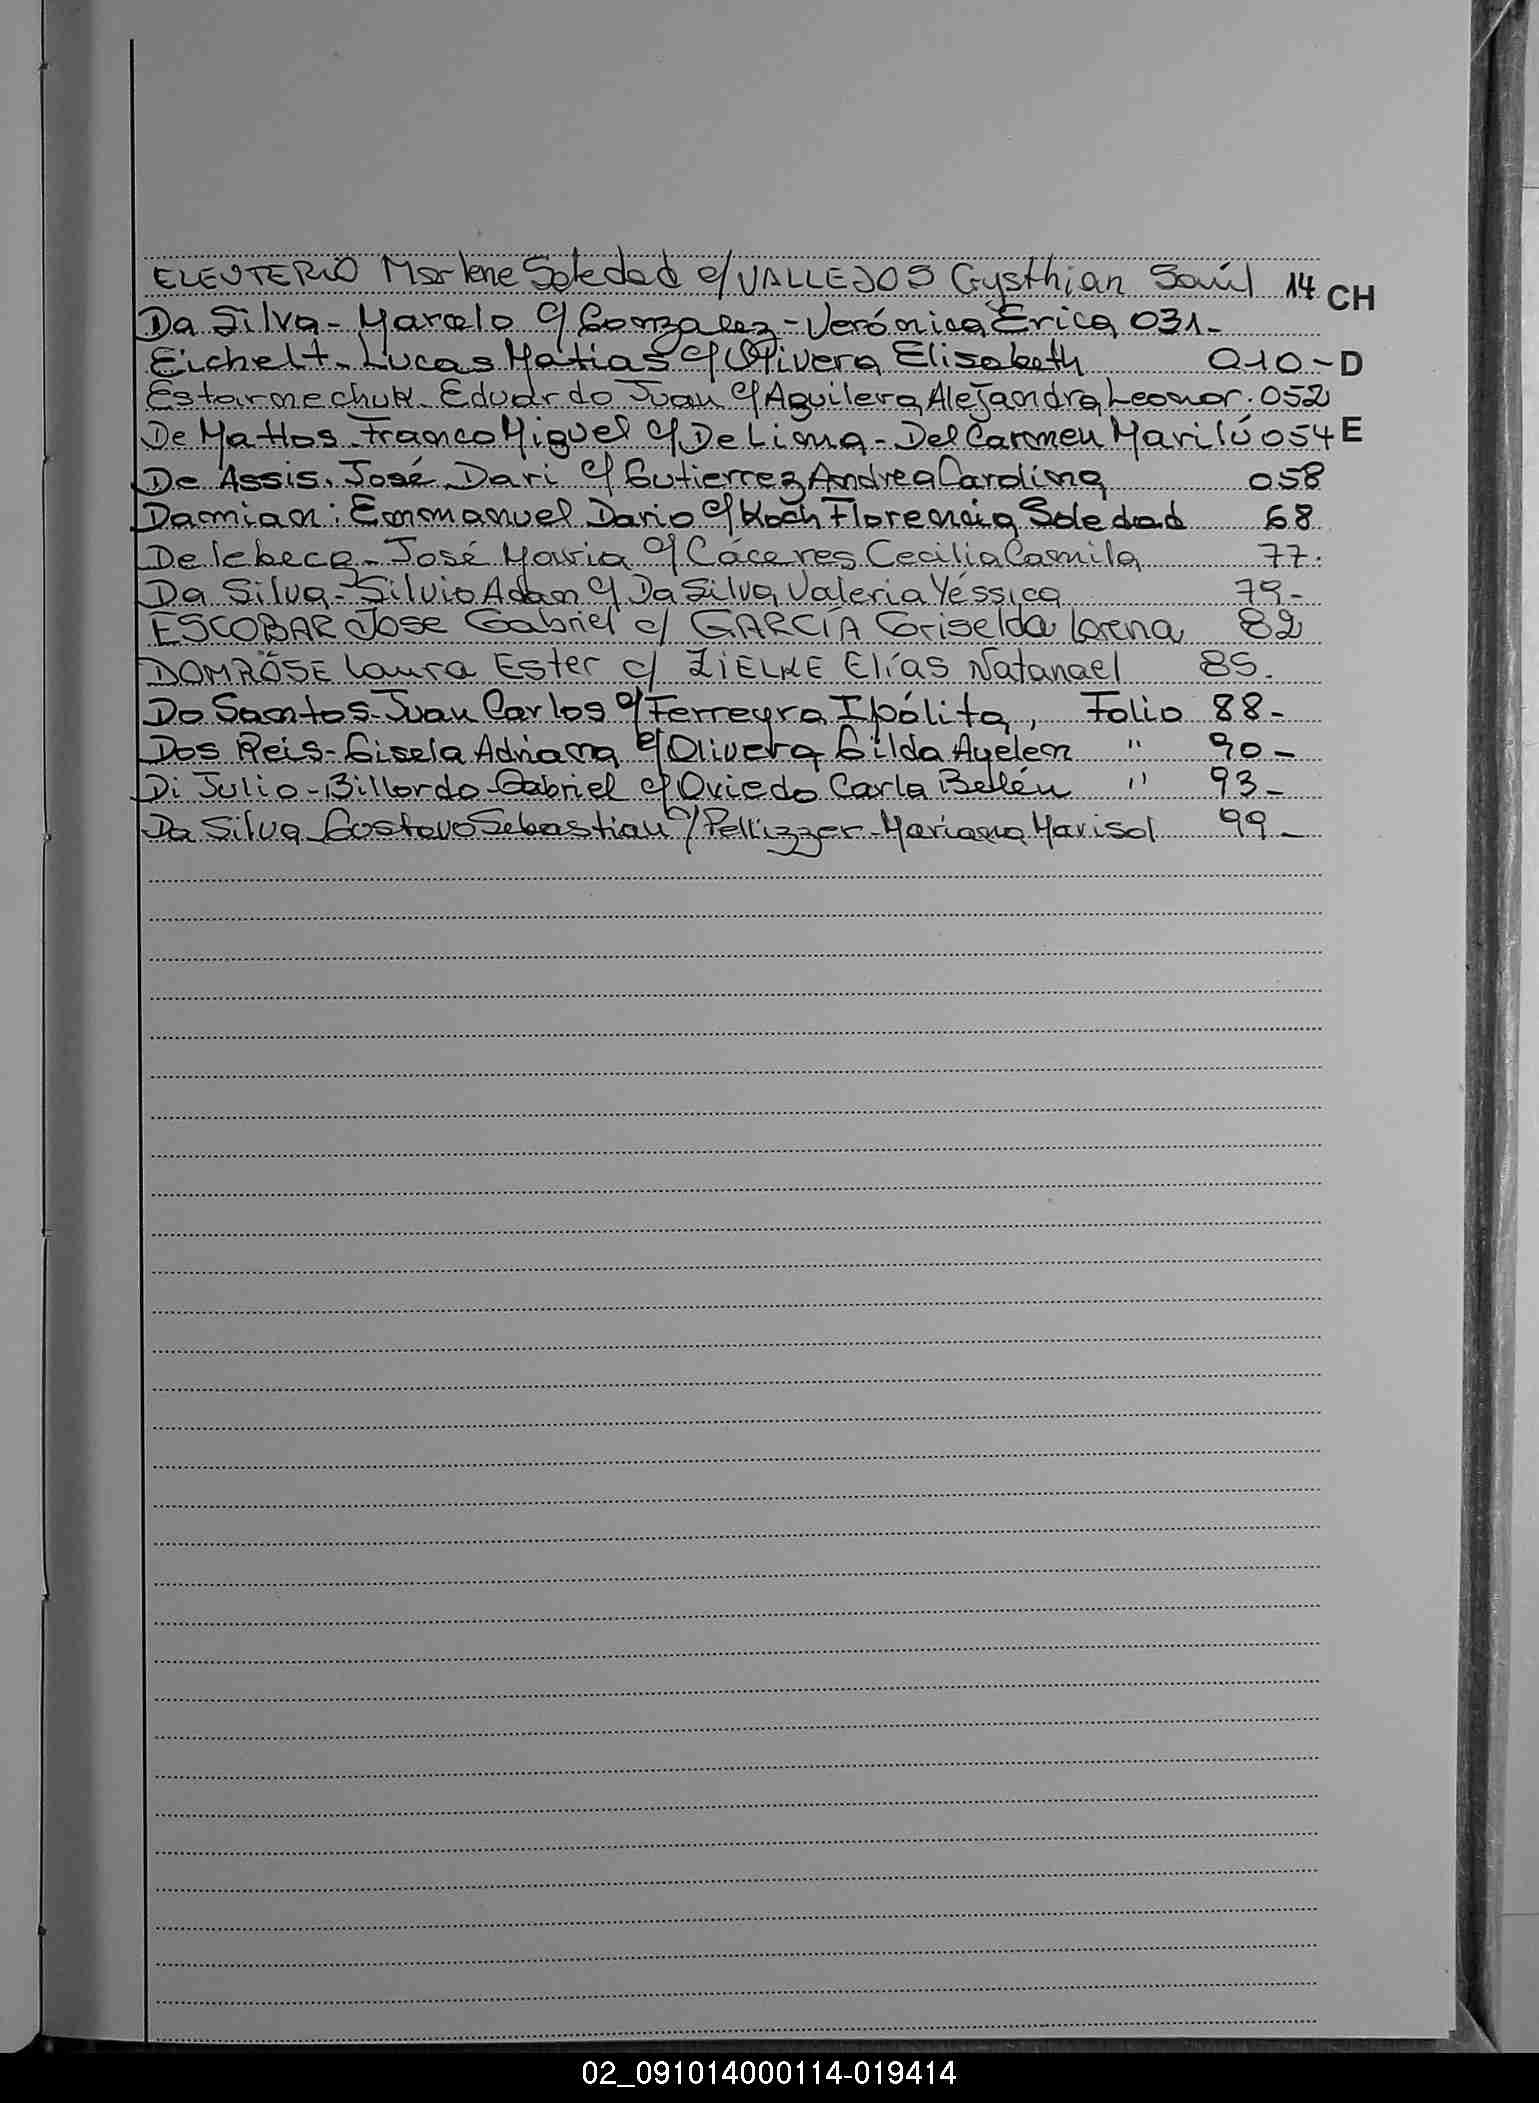 ELEUTERIO Marlene Soledad c/ VALLEJOS Cysthian Saúl 14 CH
Da Silva - Marcelo c/ Gonzalez - Verónica Erica 031 -
Eichelt - Lucas Matias c/ Olivera Elisabeth 010 - D
Estarnechuk - Eduardo Juan c/ Aguilera Alejandra Leonor. 052
De Mattos - Franco Miguel c/ De Lima - Del Carmen Marilú 054 E
De Assis. José Dari c/ Gutierrez Andrea Carolina 058
Damian: Emmanuel Dario c/ Koch Florencia Soledad 68
Delebecq - José Maria c/ Cáceres Cecilia Camila 77.
Da Silva - Silvio Adan c/ Da Silva Valeria Yéssica 79 -
ESCOBAR Jose Gabriel c/ GARCÍA Griselda Lorena 82
DOMRÖSE Laura Ester c/ ZIELKE Elías Natanael 85.
Do Santos - Juan Carlos c/ Ferreyra Ipólita, Folio 88 -
Dos Reis - Gisela Adriana c/ Olivera Gilda Ayelen " 90 -
Di Julio - Billordo Gabriel c/ Oviedo Carla Belén " 93 -
Da Silva Gustavo Sebastian c/ Pellizzer - Mariana Marisol 99 -
02_091014000114-019414